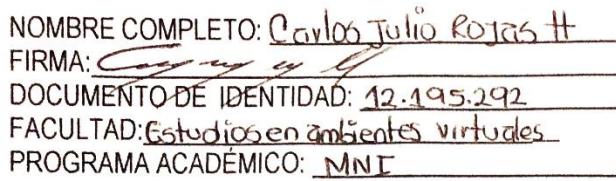 NOMBRE COMPLETO: Carlos Julio Rojas H
FIRMA:
DOCUMENTO DE IDENTIDAD: 12.195.292
FACULTAD: Estudios en ambientes virtuales
PROGRAMA ACADÉMICO: MNI